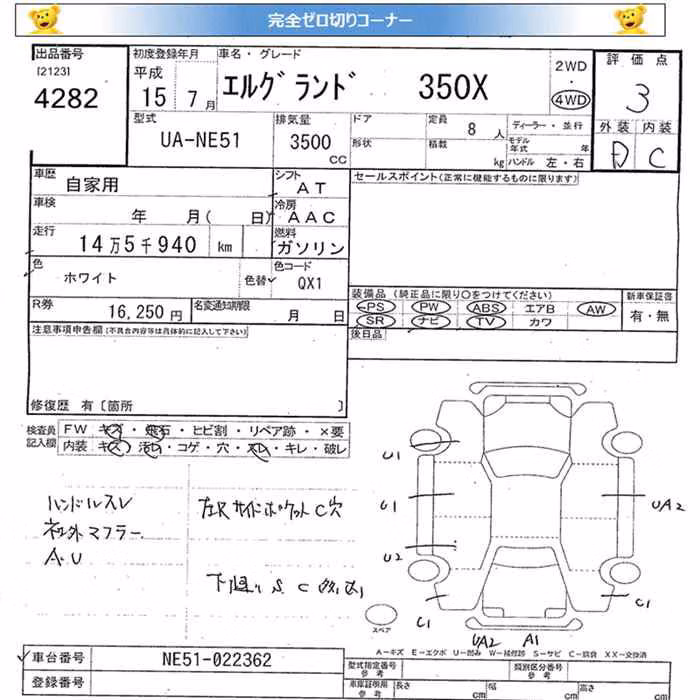 完全ゼロ切りコーナー
出品番号
[2123]
4282
初度登録年月
平成
15年 7月
車名・グレード
エルグランド 350X
2WD
・
4WD
評価点
3
外装 内装
D C
型式
UA-NE51
排気量
3500
CC
ドア
形状
定員 8人
積載 kg
ディーラー・並行
モデル年式 年
ハンドル 左・右
車歴
自家用
シフト
AT
セールスポイント(正常に機能するものに限ります)
車検
年 月( 日)
冷房
AAC
走行
14万5千940 km
燃料
ガソリン
色
ホワイト
色替
色コード
QX1
装備品 (純正品に限り○をつけてください)
新車保証書
PS PW ABS エアB AW
有・無
SR ナビ TV カワ
R券
16,250 円
名変通知期限
月 日
後日品
注意事項申告欄(不具合内容等は具体的に記入して下さい)
修復歴 有〔箇所 〕
検査員
記入欄
FW キズ・飛石・ヒビ割・リペア跡・×要
内装 キズ・汚レ・コゲ・穴・スレ・キレ・破レ
ハンドルスレ
社外マフラー
A.U
左Rサイドポケット C穴
S. C
U1
U1
U2
C1
UA2
A1
UA2
C1
スペア
A-キズ E-エクボ U-凹み W-補修跡 S-サビ C-腐食 XX-交換済
車台番号
NE51-022362
登録番号
型式指定番号
参考
類別区分番号
参考
車庫証明用
参考
長さ cm
幅 cm
高さ cm